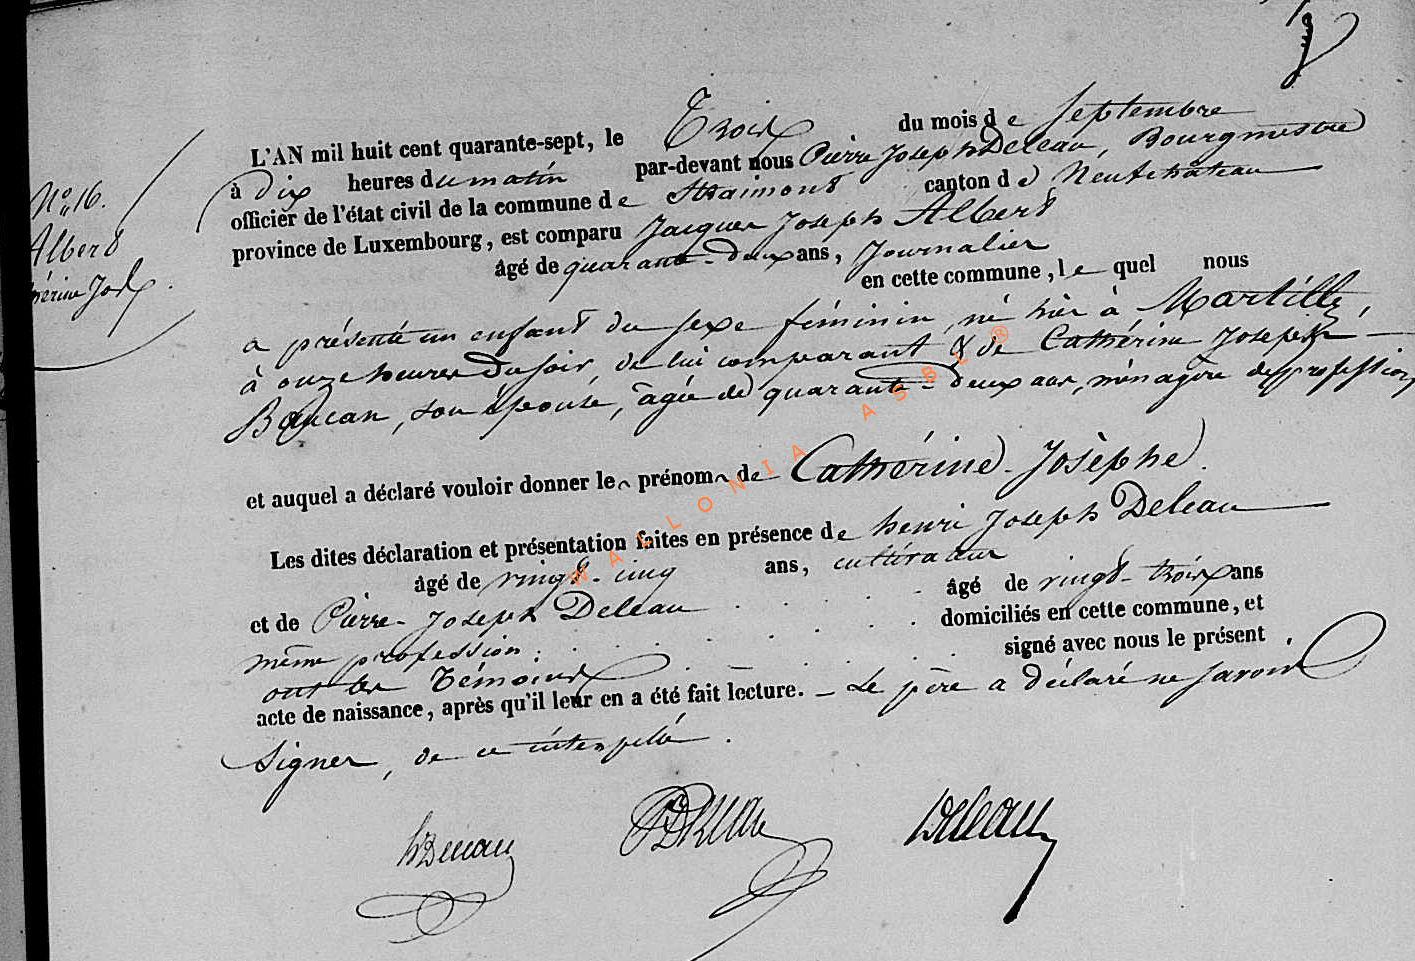 L'AN mil huit cent quarante-sept, le Trois du mois de Septembre
à dix heures du matin par-devant nous Pierre Joseph Deleau, Bourgmestre
officier de l'état civil de la commune de Straimont canton de Neufchâteau
province de Luxembourg, est comparu Jacques Joseph Albert
âgé de quarante-deux ans, Journalier
en cette commune, le quel nous
a présenté un enfant du sexe féminin, né hier à Martilly,
à onze heures du soir, de lui comparant & de Cathérine Joseph
son épouse, âgée de quarante-deux ans, ménagère de profession
et auquel a déclaré vouloir donner les prénoms de Cathérine-Josèphe.
Les dites déclaration et présentation faites en présence de henri Joseph Deleau
âgé de vingt-cinq ans, cultivateur
et de Pierre-Joseph Deleau âgé de vingt-trois ans
même profession. domiciliés en cette commune, et
ont les Témoins signé avec nous le présent
acte de naissance, après qu'il leur en a été fait lecture. – Le père a déclaré ne savoir
signer, de ce interpellé.
No 16.
Albert
Jos
hDeleau
PJDeleau
Deleau
WALLONIA ASBL ®